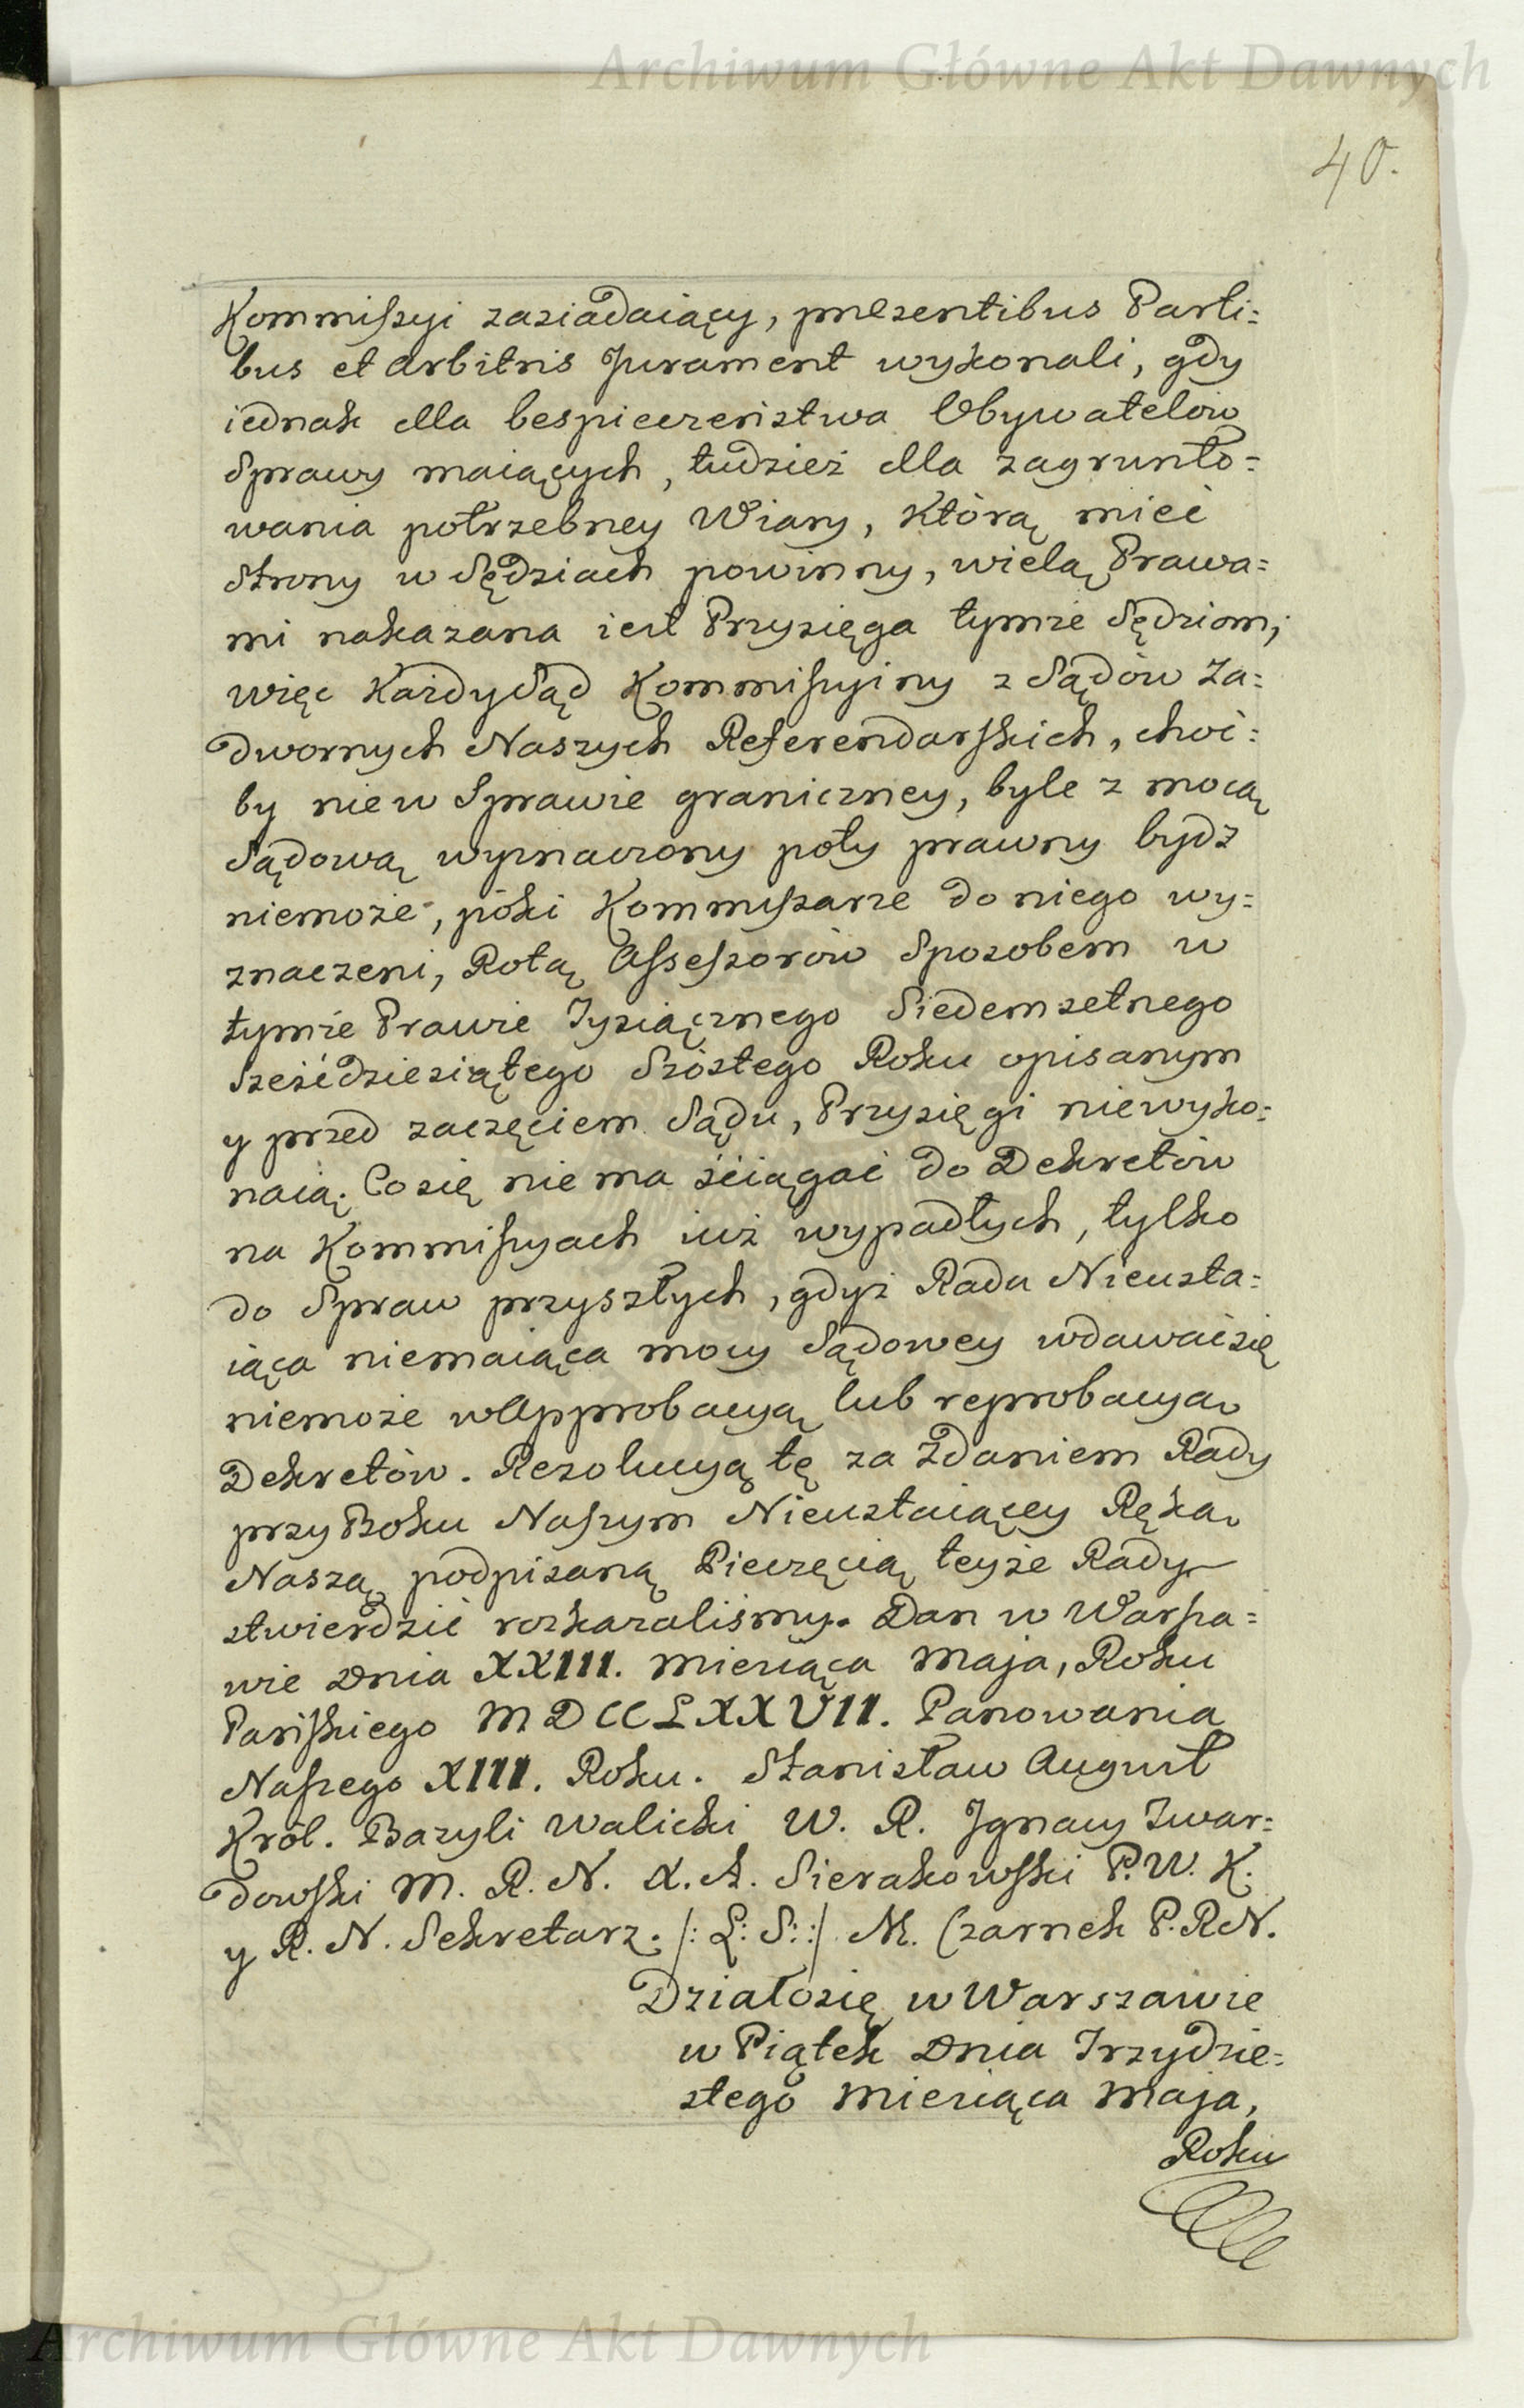 Archiwum Główne Akt Dawnych
40.
Kommissyi zasiadaiący, prezentibus Parti=
bus et Arbitris Jurament wykonali, gdy
iednak dla bespieczeństwa Obywatelów
Sprawy maiących, tudzież dla zagrunto=
wania potrzebney Wiary, którą mieć
Strony w Sędziach powinny, wielą Prawa=
mi nakazana iest Przysięga tymże Sędziom,
więc każdy Sąd Kommissyiny z Sądów Za=
dwornych Naszych Referendarskich, choć=
by nie w Sprawie graniczney, byle z mocą
Sądową wyznaczony poty prawny bydź
niemoże, póki Kommissarze do niego wy=
znaczeni, Rotą Assessorów Sposobem w
tymże Prawie Tysiącznego Siedemsetnego
Sześćdziesiątego Szóstego Roku opisanym
y przed zaczęciem Sądu, Przysięgi niewyko=
naią. Co się nie ma ściągać do Dekretów
na Kommissyach iuż wypadłych, tylko
do Spraw przyszłych, gdyż Rada Nieusta=
iąca niemaiąca mocy Sądowey wdawać się
niemoże w Approbacyą lub reprobacyą
Dekretów. Rezolucyą tę za Zdaniem Rady
przy Boku Naszym Nieustaiącey Ręką
Naszą podpisaną Pieczęcią teyże Rady
stwierdzić rozkazaliśmy. Dan w Warsza=
wie Dnia XXIII. Miesiąca Maja, Roku
Pańskiego MDCCLXXVII. Panowania
Naszego XIII. Roku. Stanisław August
Król. Bazyli Walicki W. R. Jgnacy Twar=
dowski M. R. N. X. A. Sierakowski P. W. K.
y R. N. Sekretarz. /: L: S: :/ M. Czarnek P. R N.
Działo się w Warszawie
w Piątek Dnia Trzydzie=
stego Miesiąca Maja,
Roku
Archiwum Główne Akt Dawnych